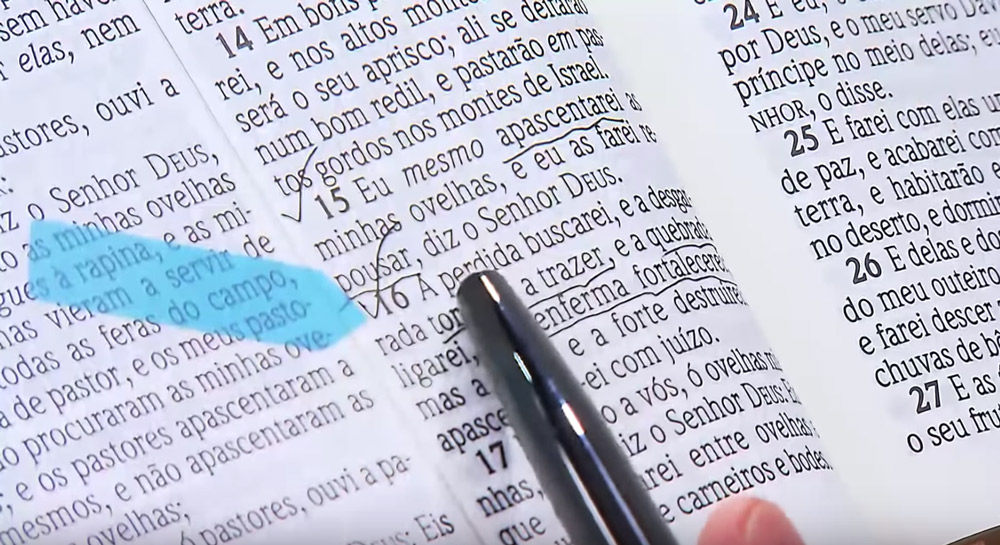 sem hav
elas, nem
astores, ouvi a
o Senhor DEUS,
as minhas ovelhas
à rapina, e as mi-
nhas vieram a servir de
todas as feras do campo,
de pastor, e os meus pasto-
procuraram as minhas ove-
e os pastores apascentaram a
mesmos, e não apascentaram as
ovelhas;
ó pastores, ouvi a pa-
Eis
terra.
14 Em bons
rei, e nos altos montes
será o seu aprisco; ali se deitarão
num bom redil, e pastarão em pas-
tos gordos nos montes de Israel.
15 Eu mesmo apascentarei as
minhas ovelhas, e eu as farei re-
pousar, diz o Senhor DEUS.
16 A perdida buscarei, e a desgar-
rada a trazer, e a quebrada
ligarei, enferma fortalecerei
mas a e a forte destruirei
apasce ei com juízo.
17 o a vós, ó ovelhas mi
nhas, iz o Senhor DEUS:
que arei entre ovelhas
e carneiros e bodes.
24 E eu,
por Deus, e o meu servo Davi
príncipe no meio delas; eu,
NHOR, o disse.
25 E farei com elas u
de paz, e acabarei com
terra, e habitarão
no deserto, e dormi
26 E delas e do
do meu outeiro
e farei descer
chuvas de bê
27 E as
o seu fru